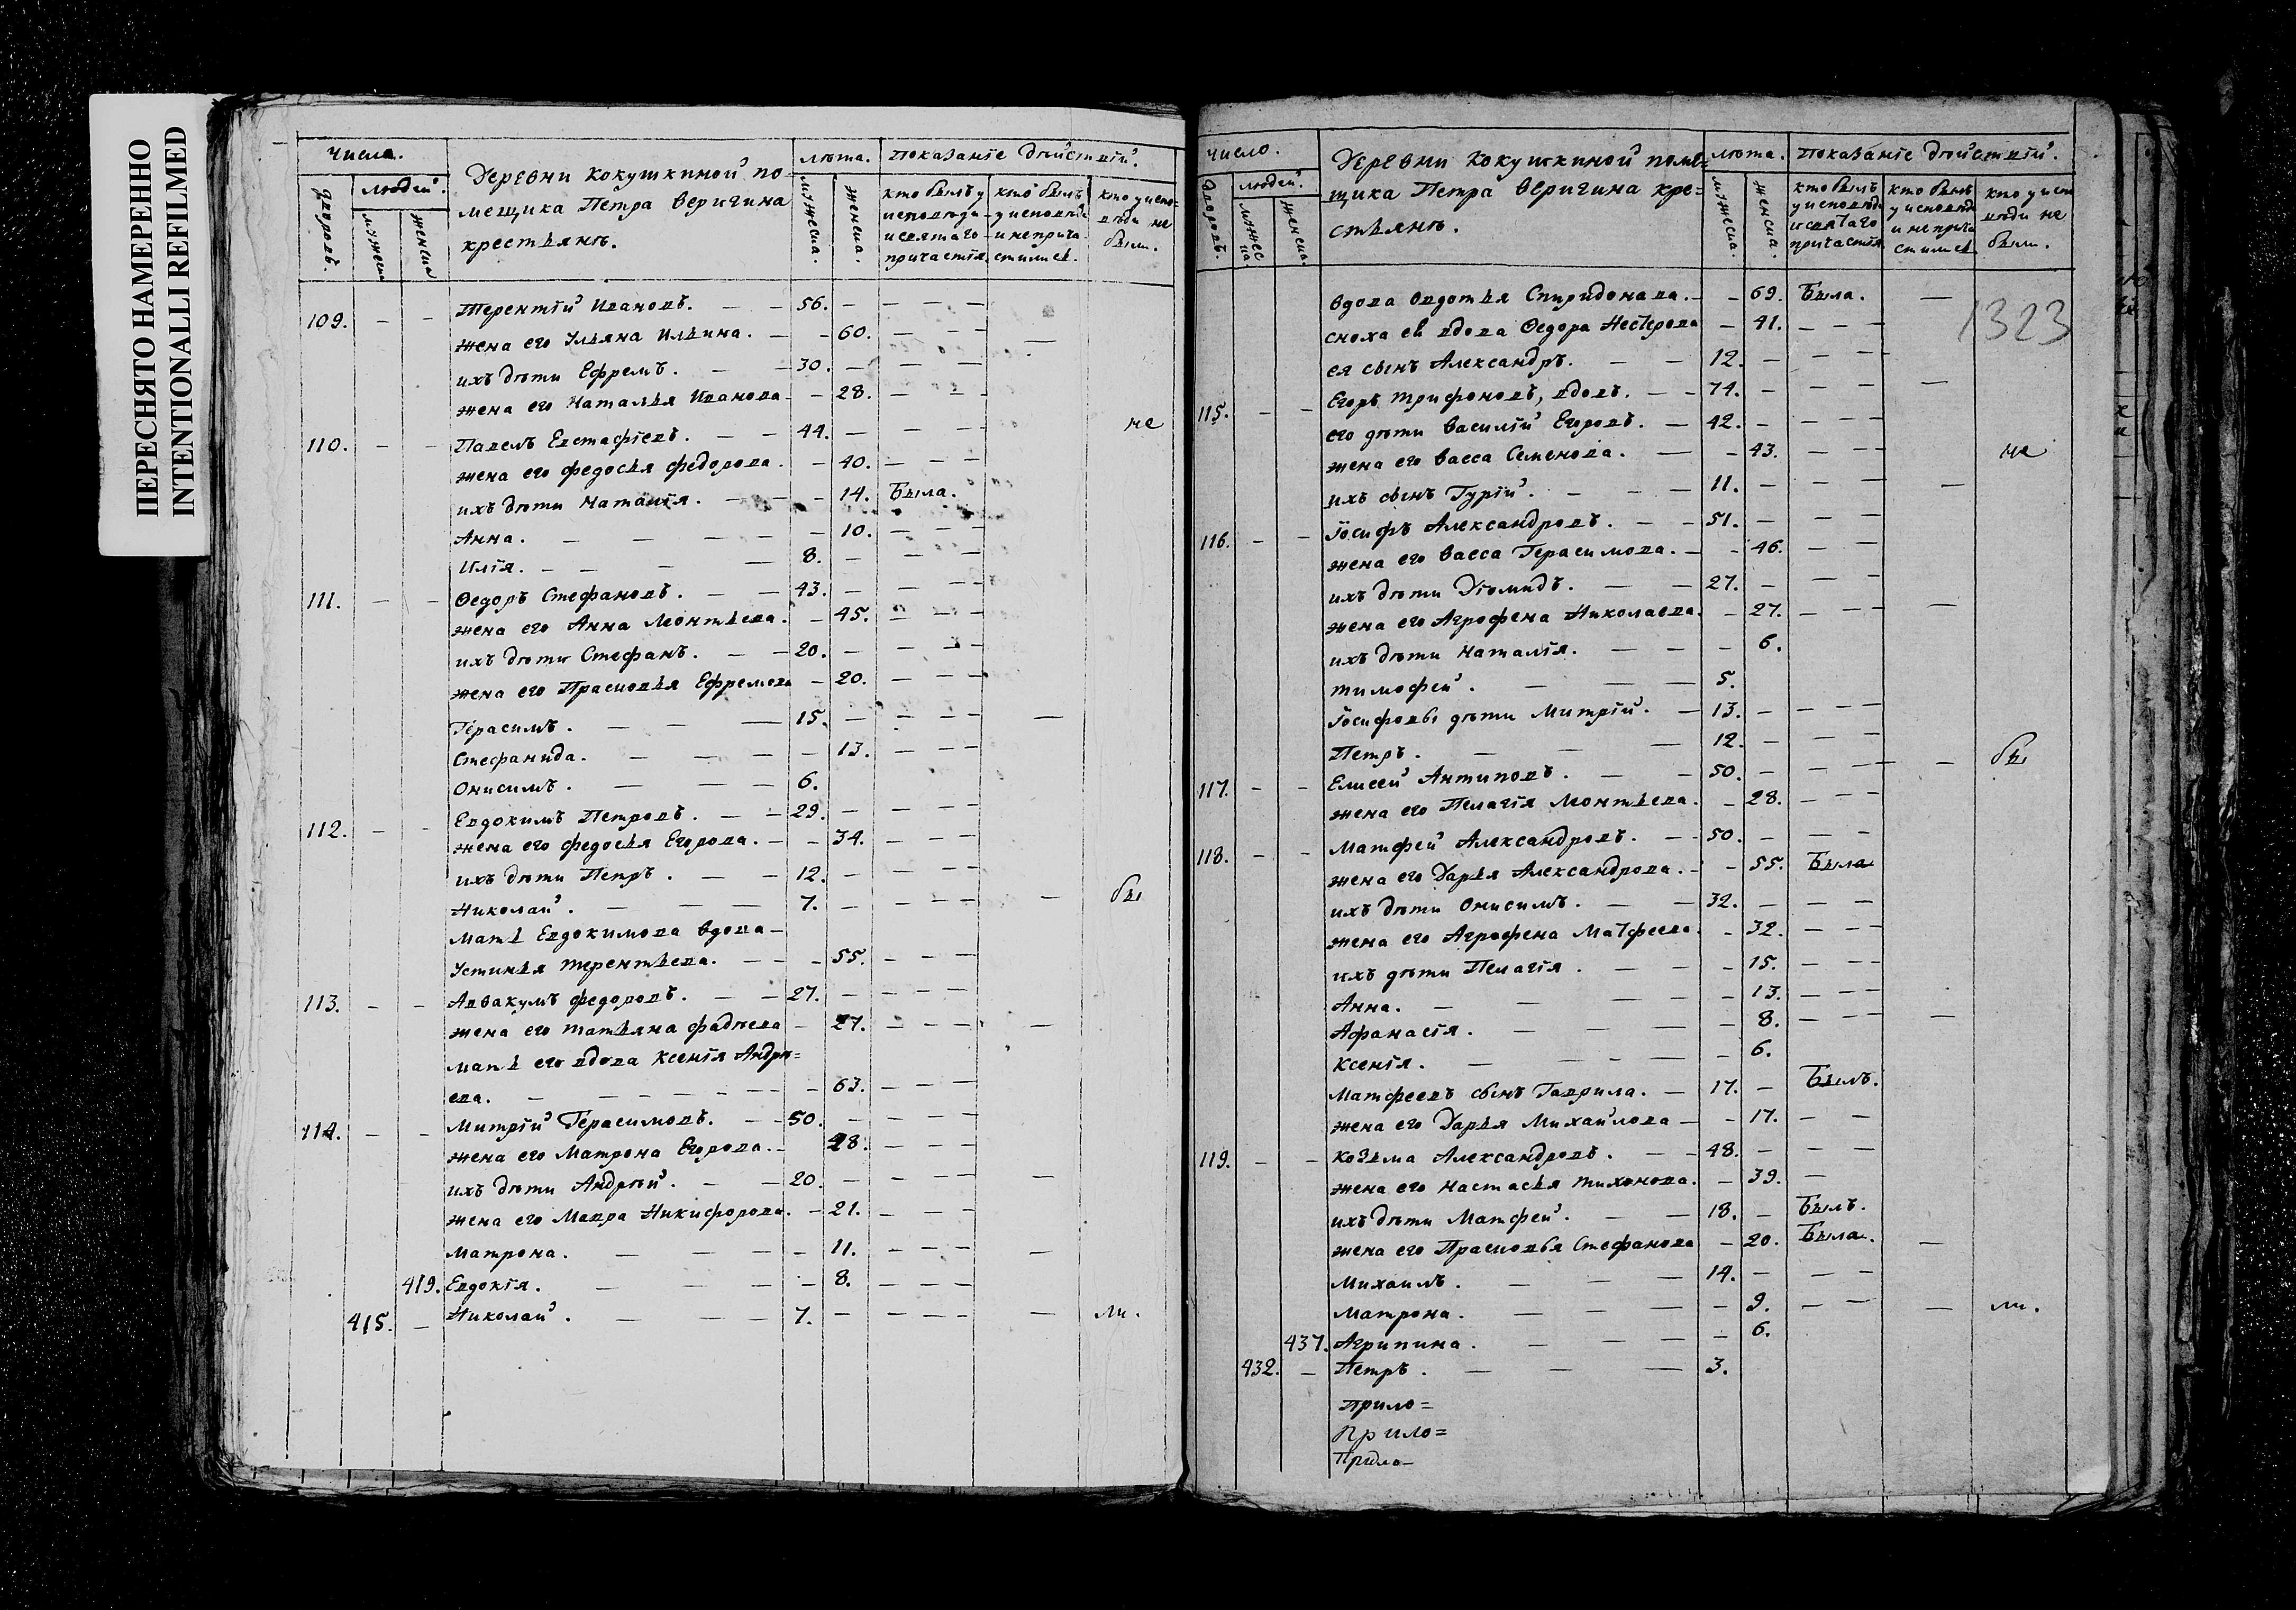 ПЕРЕСНЯТО НАМЕРЕННО
INTENTIONALLI REFILMED
Числа.
дворовъ.
людей.
мужеска
женска
Деревни Кокушкиной по-
мещика Петра Веригина
крестьянъ.
лѣта.
мужеска.
женска.
Показанiе дѣйствiй.
кто былъ у
исповѣди
и святаго
причастiя
кто былъ
у исповѣди
и неприча
стился.
кто у испо-
вѣди не
были.
109. — — Терентiй Ивановъ. — — 56. — — — —
жена его Ульяна Ильина. — — 60. — — — —
ихъ дѣти Ефремъ. — — 30. — — —
жена его Наталья Иванова — — 28. — — —
не
110. — — Павелъ Евстафiевъ. — — 44. — — — —
жена его Федосья Федорова. — 40. — — —
ихъ дѣти Наталiя. — — — 14. Была.
Анна. — — — — — 10. — — —
Илiя. — — — — 8. — — — —
111. — — Ѳедоръ Стефановъ. — — 43. — — — —
жена его Анна Монтьева. — 45. — — —
ихъ дѣти Стефанъ. — — 20. — — — —
жена его Прасковья Ефремова — 20. — — —
Герасимъ. — — — 15. — — — — —
Стефанида. — — — — 13. — — —
Онисимъ. — — — 6.
112. — — Евдокимъ Петровъ. — — 29. — — — —
жена его Федосья Егорова. — — 34. — — —
ихъ дѣти Петръ. — — 12. — — — —
Николай. — — — 7. — — — — —
бы
Мать Евдокимова вдова —
Устинья Терентьева. — — — 55. — — —
113. — — Аввакумъ Федоровъ. — — 27. — — — —
жена его Татьяна Фадѣева — 27. — — — —
мать его вдова Ксенiя Андре=
ева. — — — — — — — 63. — — —
114. — — Митрiй Герасимовъ. — — 50. — — — —
жена его Матрона Егорова. — 28. — — —
ихъ дѣти Андрѣй. — — 20. — — — — —
жена его Мавра Никифорова. — 21. — — —
Матрона. — — — — 11. — — — —
419. Евдокiя. — — — — 8. — — —
415. — Николай. — — — 7. — — — — —
ли.
число.
дворовъ.
людей.
мужес
ка
женска.
Деревни Кокушкиной поме=
щика Петра Веригина кре=
стьянъ.
лѣта.
мужеска.
женска.
Показанiе дѣйствiй.
кто былъ
у исповѣди
и святаго
причастiя
кто былъ
у исповѣди
и неприча
стился
кто у испо
вѣди не
были.
1323
Вдова Овдотья Спиридонова. — — 69. Была. —
сноха ей вдова Ѳедора Нестерова — 41. — — —
ея сынъ Александръ. — — 12. — — — —
115. — — Егоръ Трифоновъ, вдовъ. — — 74. — — — — —
его дѣти Василiй Егоровъ. — 42. — — — —
жена его Васса Семенова. — — 43. — — —
не
ихъ сынъ Гурiй. — — — 11. — — — — —
116. — — Iосифъ Александровъ. — — 51. — — — —
жена его Васса Герасимова. — — 46. — — —
ихъ дѣти Дiомидъ. — — 27. — — — —
жена его Агрофена Николаева. — 27. — — — —
ихъ дѣти Наталiя. — — — 6.
Тимофей. — — — 5.
Iосифовы дѣти Митрiй. — 13. — — — —
Петръ. — — — 12. — — — —
117. — — Елисей Антиповъ. — — 50. — — — — —
бы
жена его Пелагiя Монтьева. — 28. — — —
118. — — Матфей Александровъ. — — 50. — — — —
жена его Дарья Александрова. — — 55. Была
ихъ дѣти Онисимъ. — — 32. — — — —
жена его Агрофена Матфеева. — 32. — — —
ихъ дѣти Пелагiя. — — — 15. — — —
Анна. — — — — — 13. — — —
Афанасiя. — — — — 8. — — — —
Ксенiя. — — — — — 6.
Матфеевъ сынъ Гаврила. — 17. — Былъ.
жена его Дарья Михайлова — — 17. — —
119. — — Козьма Александровъ. — — 48. — — — —
жена его Настасья Тихонова. — 39. —
ихъ дѣти Матфей. — — 18. — Былъ.
жена его Прасковья Стефанова — 20. Была. —
Михаилъ. — — — 14. — — — —
Матрона. — — — — 9. — — — —
ли.
437. Агрипина. — — — — 6.
432. — Петръ. — — — 3.
Прило=
Прило=
Прило—